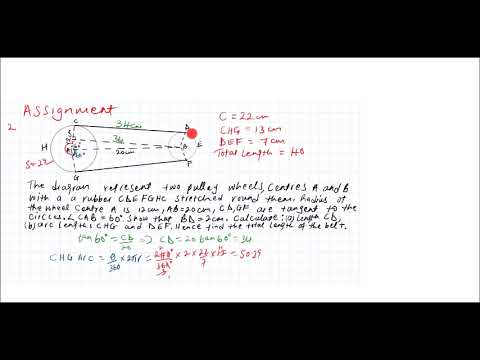 Assignment
2.
C 34cm D
H 34 20cm B E
S=0.29
G F
C = 22cm
CHG = 13cm
DEF = 7cm
Total Length = 40
The diagram represent two pulley wheels, Centres A and B
with a a rubber CDEFGHC stretched round them. Radius of
the wheel Centre A is 12cm, AB=20cm, CD, GF are tangent to the
Circles. ∠CAB = 60°. Show that BD = 2cm. Calculate: (a) Length CD,
(b) arc lengths CHG and DEF. Hence find the total length of the belt.
tan 60° = CD/20 => CD = 20 tan 60° = 34
CHG Arc = θ/360 × 2πr = 240°/360° × 2 × 22/7 × 12 = 50.29